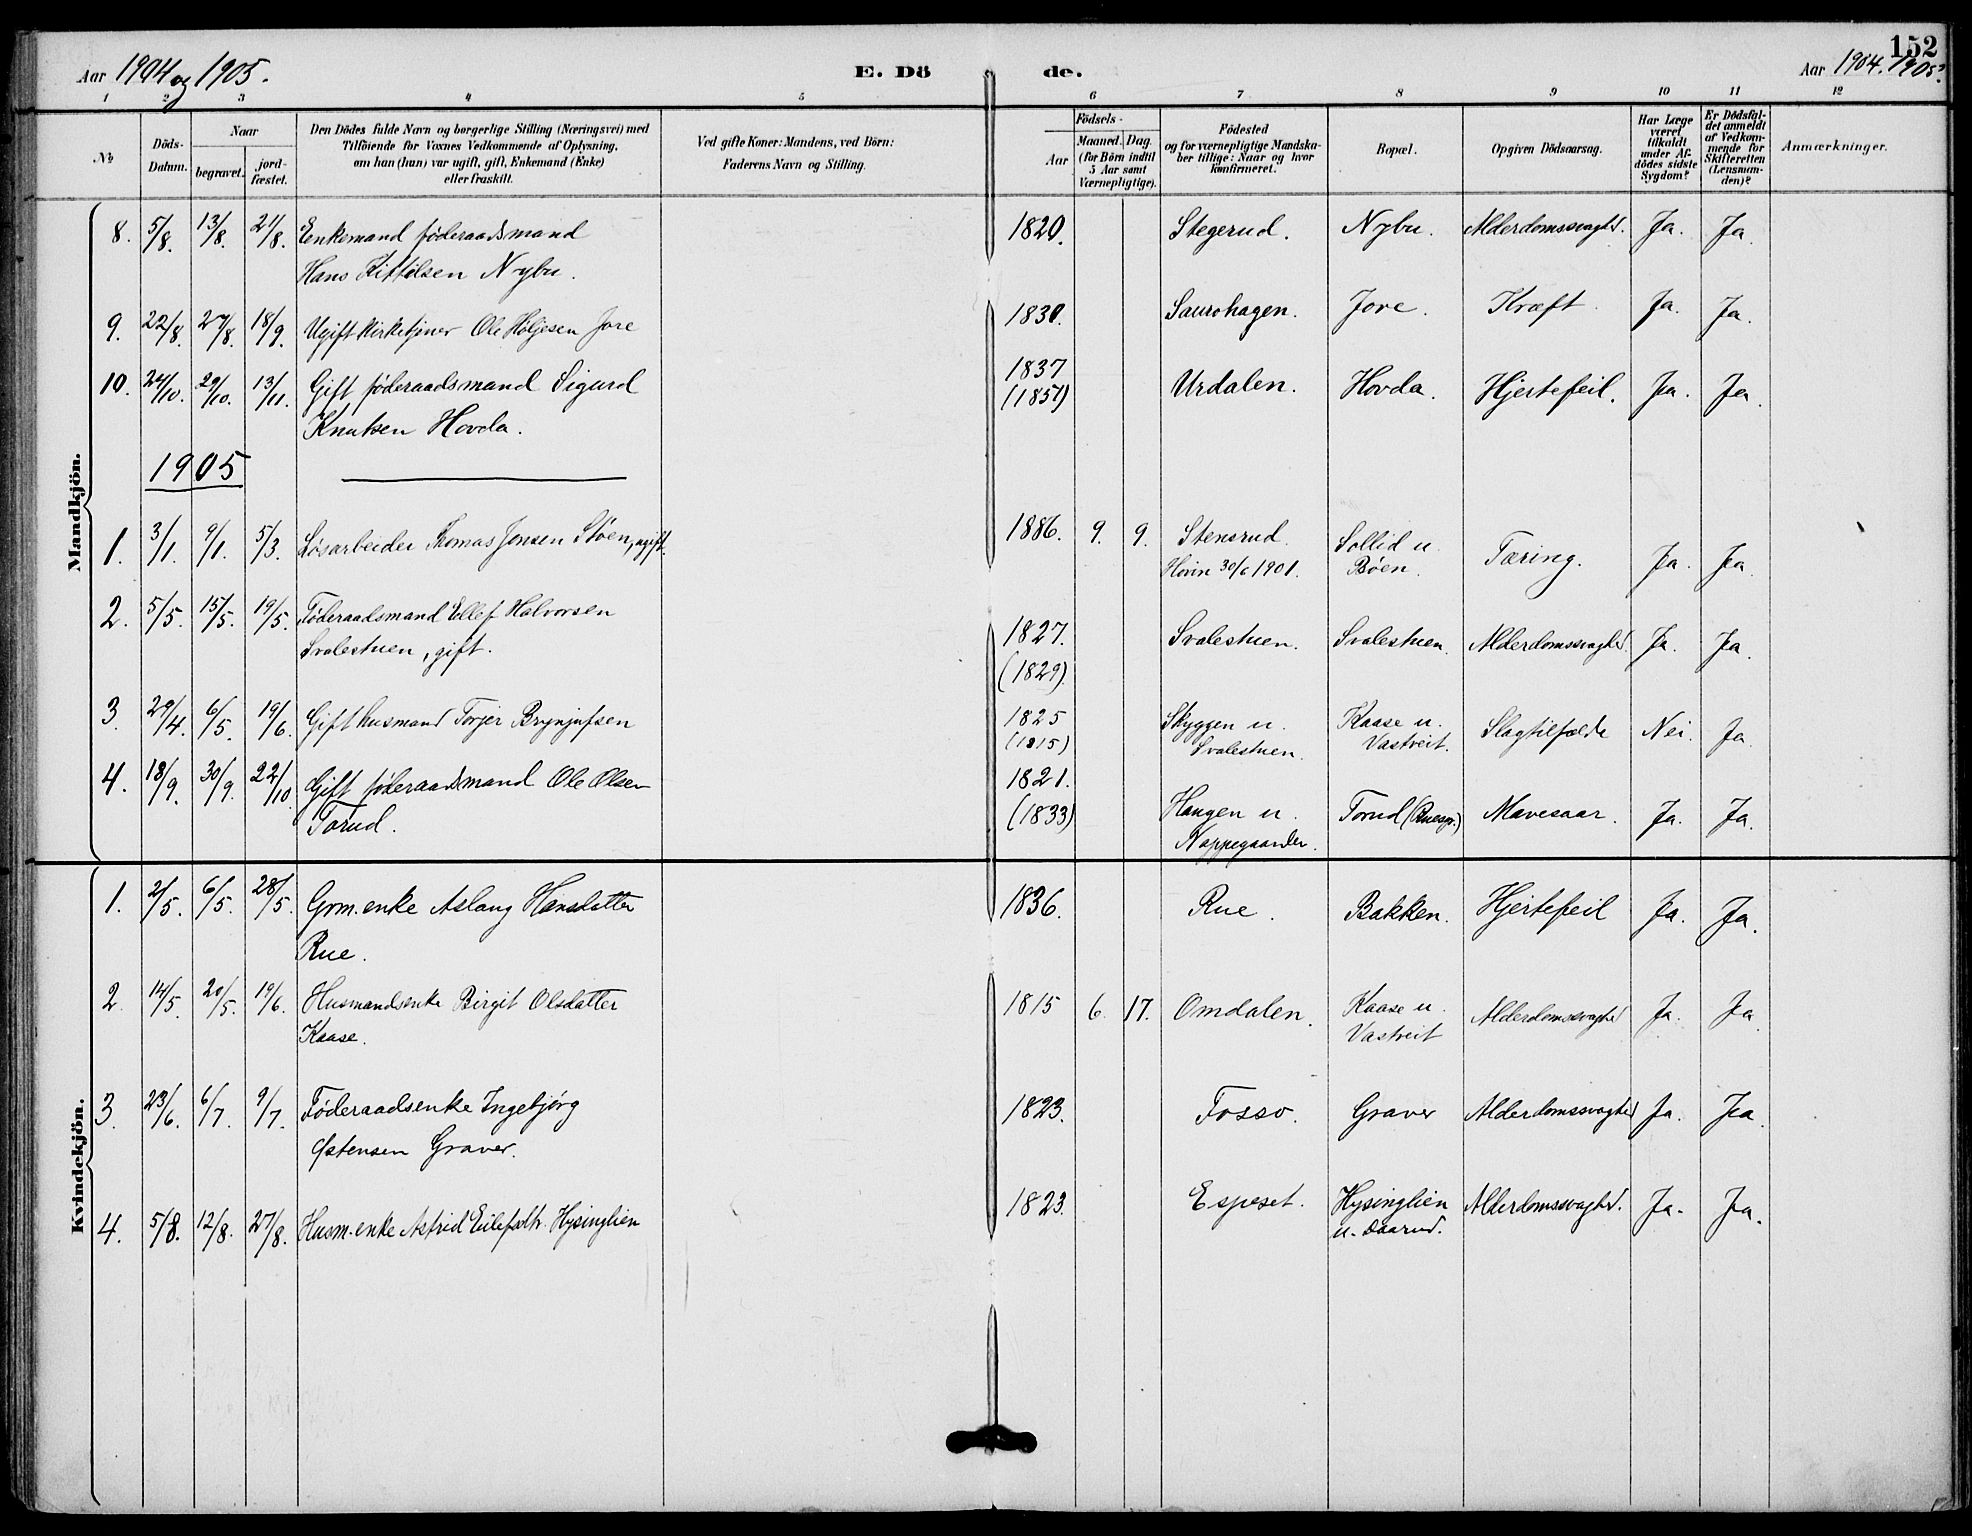 152
Aar 1904 og 1905. E. Dö de. Aar 1904. 1905.
1 2 3 4 5 6 7 8 9 10 11 12
No Döds-Datum. Naar begravet. jord-fæstet. Den Dödes fulde Navn og borgerlige Stilling (Næringsvei) med Tilföiende for Voxnes Vedkommende af Oplysning, om han (hun) var ugift, gift, Enkemand (Enke) eller fraskilt. Ved gifte Koner: Mandens, ved Börn: Faderens Navn og Stilling. Födsels- Aar Maaned. Dag. (for Börn indtil 5 Aar samt Værnepligtige). Födested og for værnepligtige Mandskaber tillige: Naar og hvor konfirmeret. Bopæl. Opgiven Dödsaarsag. Har Læge været tilkaldt under Afdödes sidste Sygdom? Er Dödsfaldet anmeldt af Vedkommende for Skifteretten (Lensmanden)? Anmærkninger.
Mandkjön.
8. 5/8. 13/8. 21/8. Enkemand föderaadsmand 1820. Stegerud. Nybu. Alderdomssvaghd. Ja. Ja.
Hans Kittilsen Nybu.
9. 22/8. 27/8. 18/9. Ugift kirketjener Ole Holjesen Jore 1830. Saurohagen. Jore. Kræft. Ja. Ja.
10. 24/10. 29/10. 13/11. Gift föderaadsmand Sigurd 1837 Urdalen. Hovda. Hjertefeil. Ja. Ja.
Knutsen Hovda. (1857)
1905
1. 3/1. 9/1. 5/3. Lösarbeider Thomas Jensen Stöen, ugift. 1886. 9. 9. Stensrud. Sollid u. Tæring. Ja. Ja.
Hovin 30/6 1901. Böen.
2. 5/5. 15/5. 19/5. Föderaadsmand Ellef Halvorsen 1827. Svalestuen. Svalestuen. Alderdomssvaghd. Ja. Ja.
Svalestuen, gift. (1829).
3. 29/4. 6/5. 19/6. Gift husmand Torjer Brynjufsen 1825 Skyggen u. Kaase u. Slagtilfælde Nei. Ja.
(1815) Svalestuen. Vastveit.
4. 18/9. 30/9. 22/10. Gift föderaadsmand Ole Olsen 1821. Haugen u. Torud Mavesaar. Ja. Ja.
Torud. (1833) Nappegaarden.
Kvindekjön.
1. 2/5. 6/5. 28/5. Grm.enke Aslaug Hansdatter 1836. Rue. Bakken. Hjertefeil Ja. Ja.
Rue.
2. 14/5. 20/5. 19/6. Husmandsenke Birgit Olsdatter 1815 6. 17. Omdalen. Kaase u. Alderdomssvaghd Ja. Ja.
Kaase. Vastveit
3. 23/6. 6/7. 9/7. Föderaadsenke Ingebjörg 1823. Fosso. Graver Alderdomssvaghed Ja. Ja.
Östensen Graver.
4. 5/8. 12/8. 27/8. Husm.enke Astrid Eilefsdtr. Hysinglien 1823. Espeset. Hysinglien Alderdomssvaghd. Ja. Ja.
u. Daarud.